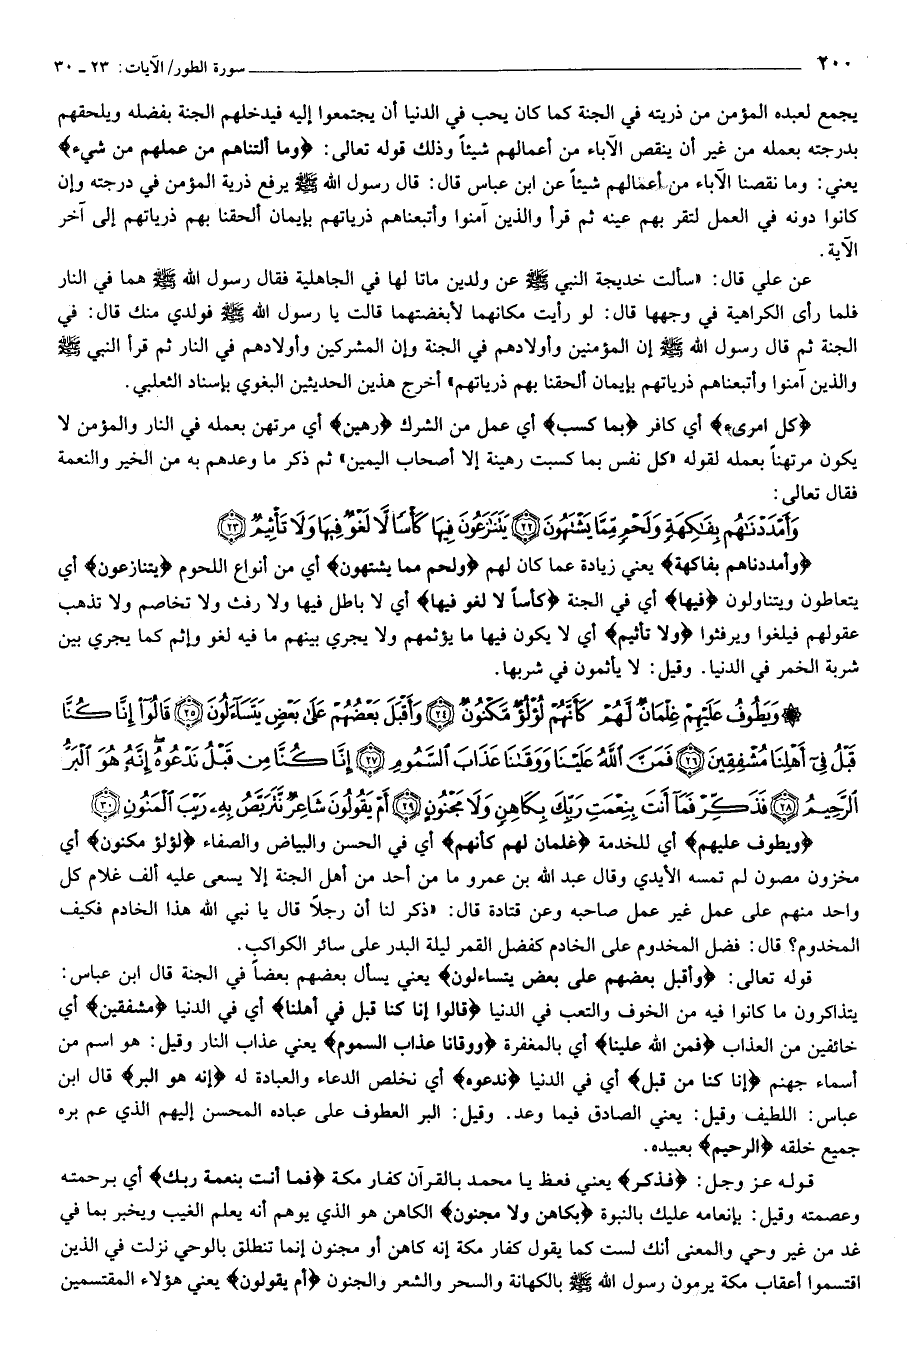 ٢٠٠ سورة الطور/ الآيات: ٢٣ ـ ٣٠
يجمع لعبده المؤمن من ذريته في الجنة كما كان يحب في الدنيا أن يجتمعوا إليه فيدخلهم الجنة بفضله ويلحقهم
بدرجته بعمله من غير أن ينقص الآباء من أعمالهم شيئاً وذلك قوله تعالى: ﴿وما ألتناهم من عملهم من شيء﴾
يعني: وما نقصنا الآباء من أعمالهم شيئاً عن ابن عباس قال: قال رسول الله ﷺ يرفع ذرية المؤمن في درجته وإن
كانوا دونه في العمل لتقر بهم عينه ثم قرأ والذين آمنوا وأتبعناهم ذرياتهم بإيمان ألحقنا بهم ذرياتهم إلى آخر
الآية.
عن علي قال: «سألت خديجة النبي ﷺ عن ولدين ماتا لها في الجاهلية فقال رسول الله ﷺ هما في النار
فلما رأى الكراهية في وجهها قال: لو رأيت مكانهما لأبغضتهما قالت يا رسول الله ﷺ فولدي منك قال: في
الجنة ثم قال رسول الله ﷺ إن المؤمنين وأولادهم في الجنة وإن المشركين وأولادهم في النار ثم قرأ النبي ﷺ
والذين آمنوا وأتبعناهم ذرياتهم بإيمان ألحقنا بهم ذرياتهم» أخرج هذين الحديثين البغوي بإسناد الثعلبي.
﴿كل امرىء﴾ أي كافر ﴿بما كسب﴾ أي عمل من الشرك ﴿رهين﴾ أي مرتهن بعمله في النار والمؤمن لا
يكون مرتهناً بعمله لقوله «كل نفس بما كسبت رهينة إلا أصحاب اليمين» ثم ذكر ما وعدهم به من الخير والنعمة
فقال تعالى:
وَأَمْدَدْنَٰهُم بِفَٰكِهَةٍ وَلَحْمٍ مِّمَّا يَشْتَهُونَ ﴿٢٢﴾ يَتَنَٰزَعُونَ فِيهَا كَأْسًا لَّا لَغْوٌ فِيهَا وَلَا تَأْثِيمٌ ﴿٢٣﴾
﴿وأمددناهم بفاكهة﴾ يعني زيادة عما كان لهم ﴿ولحم مما يشتهون﴾ أي من أنواع اللحوم ﴿يتنازعون﴾ أي
يتعاطون ويتناولون ﴿فيها﴾ أي في الجنة ﴿كأساً لا لغو فيها﴾ أي لا باطل فيها ولا رفث ولا تخاصم ولا تذهب
عقولهم فيلغوا ويرفثوا ﴿ولا تأثيم﴾ أي لا يكون فيها ما يؤثمهم ولا يجري بينهم ما فيه لغو وإثم كما يجري بين
شربة الخمر في الدنيا. وقيل: لا يأثمون في شربها.
۞ وَيَطُوفُ عَلَيْهِمْ غِلْمَانٌ لَّهُمْ كَأَنَّهُمْ لُؤْلُؤٌ مَّكْنُونٌ ﴿٢٤﴾ وَأَقْبَلَ بَعْضُهُمْ عَلَىٰ بَعْضٍ يَتَسَآءَلُونَ ﴿٢٥﴾ قَالُوٓا۟ إِنَّا كُنَّا
قَبْلُ فِىٓ أَهْلِنَا مُشْفِقِينَ ﴿٢٦﴾ فَمَنَّ ٱللَّهُ عَلَيْنَا وَوَقَىٰنَا عَذَابَ ٱلسَّمُومِ ﴿٢٧﴾ إِنَّا كُنَّا مِن قَبْلُ نَدْعُوهُ إِنَّهُۥ هُوَ ٱلْبَرُّ
ٱلرَّحِيمُ ﴿٢٨﴾ فَذَكِّرْ فَمَآ أَنتَ بِنِعْمَتِ رَبِّكَ بِكَاهِنٍ وَلَا مَجْنُونٍ ﴿٢٩﴾ أَمْ يَقُولُونَ شَاعِرٌ نَّتَرَبَّصُ بِهِۦ رَيْبَ ٱلْمَنُونِ ﴿٣٠﴾
﴿ويطوف عليهم﴾ أي للخدمة ﴿غلمان لهم كأنهم﴾ أي في الحسن والبياض والصفاء ﴿لؤلؤ مكنون﴾ أي
مخزون مصون لم تمسه الأيدي وقال عبد الله بن عمرو ما من أحد من أهل الجنة إلا يسعى عليه ألف غلام كل
واحد منهم على عمل غير عمل صاحبه وعن قتادة قال: «ذكر لنا أن رجلاً قال يا نبي الله هذا الخادم فكيف
المخدوم؟ قال: فضل المخدوم على الخادم كفضل القمر ليلة البدر على سائر الكواكب.
قوله تعالى: ﴿وأقبل بعضهم على بعض يتساءلون﴾ يعني يسأل بعضهم بعضاً في الجنة قال ابن عباس:
يتذاكرون ما كانوا فيه من الخوف والتعب في الدنيا ﴿قالوا إنا كنا قبل في أهلنا﴾ أي في الدنيا ﴿مشفقين﴾ أي
خائفين من العذاب ﴿فمن الله علينا﴾ أي بالمغفرة ﴿ووقانا عذاب السموم﴾ يعني عذاب النار وقيل: هو اسم من
أسماء جهنم ﴿إنا كنا من قبل﴾ أي في الدنيا ﴿ندعوه﴾ أي نخلص الدعاء والعبادة له ﴿إنه هو البر﴾ قال ابن
عباس: اللطيف وقيل: يعني الصادق فيما وعد. وقيل: البر العطوف على عباده المحسن إليهم الذي عم بره
جميع خلقه ﴿الرحيم﴾ بعبيده.
قوله عز وجل: ﴿فذكر﴾ يعني فعظ يا محمد بالقرآن كفار مكة ﴿فما أنت بنعمة ربك﴾ أي برحمته
وعصمته وقيل: بإنعامه عليك بالنبوة ﴿بكاهن ولا مجنون﴾ الكاهن هو الذي يوهم أنه يعلم الغيب ويخبر بما في
غد من غير وحي والمعنى أنك لست كما يقول كفار مكة إنه كاهن أو مجنون إنما تنطلق بالوحي نزلت في الذين
اقتسموا أعقاب مكة يرمون رسول الله ﷺ بالكهانة والسحر والشعر والجنون ﴿أم يقولون﴾ يعني هؤلاء المقتسمين